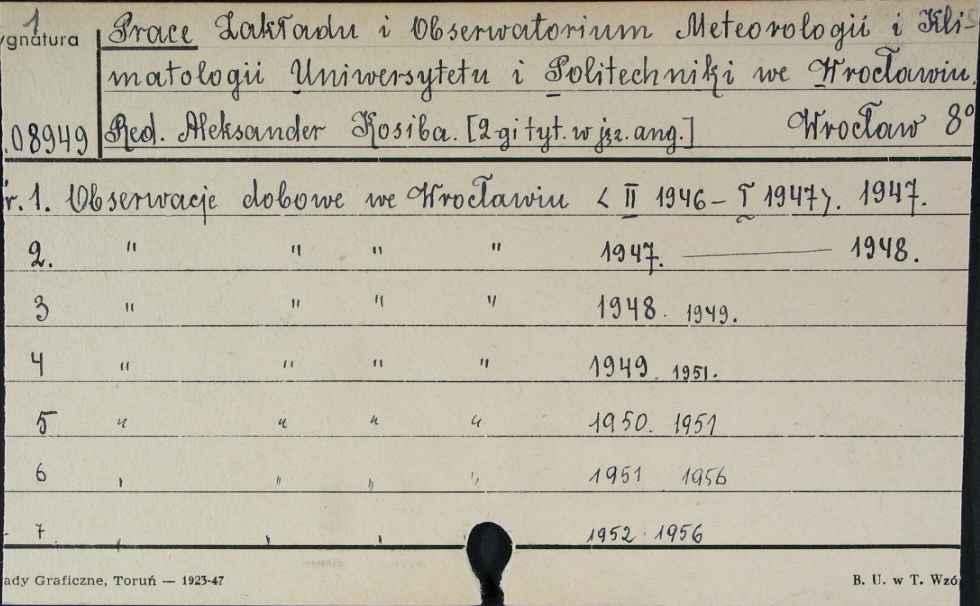 1 Prace Zakładu i Obserwatorium Meteorologii i Kli-
ygnatura
matologii Uniwersytetu i Politechniki we Wrocławiu.
.08949 Red. Aleksander Kosiba. [2-gi tyt. w jęz. ang.] Wrocław 8°
r. 1. Obserwacje dobowe we Wrocławiu < II 1946 – I 1947>. 1947.
2. " " " " 1947. —— 1948.
3 " " " " 1948. 1949.
4 " " " " 1949. 1951.
5 " " " " 1950. 1951
6 " " " " 1951 1956
7. " " " 1952 · 1956
ady Graficzne, Toruń — 1923-47 B. U. w T. Wzó